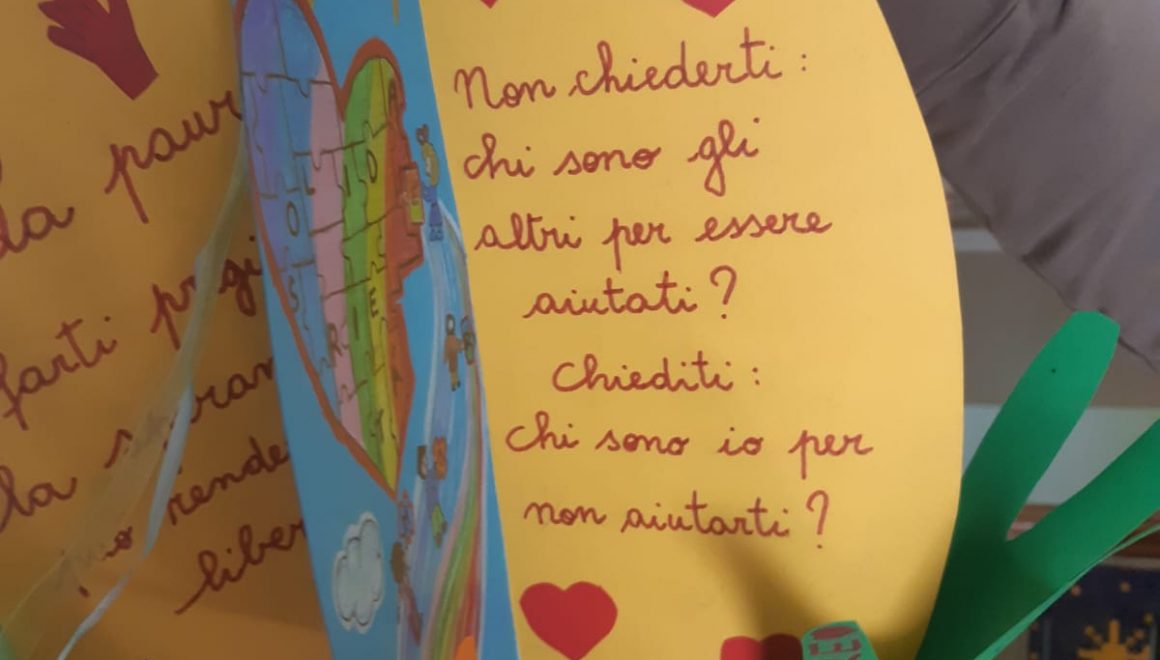 la paur
farti
la
rende
liber
Non chiederti:
chi sono gli
altri per essere
aiutati?
Chiediti:
chi sono io per
non aiutarti?